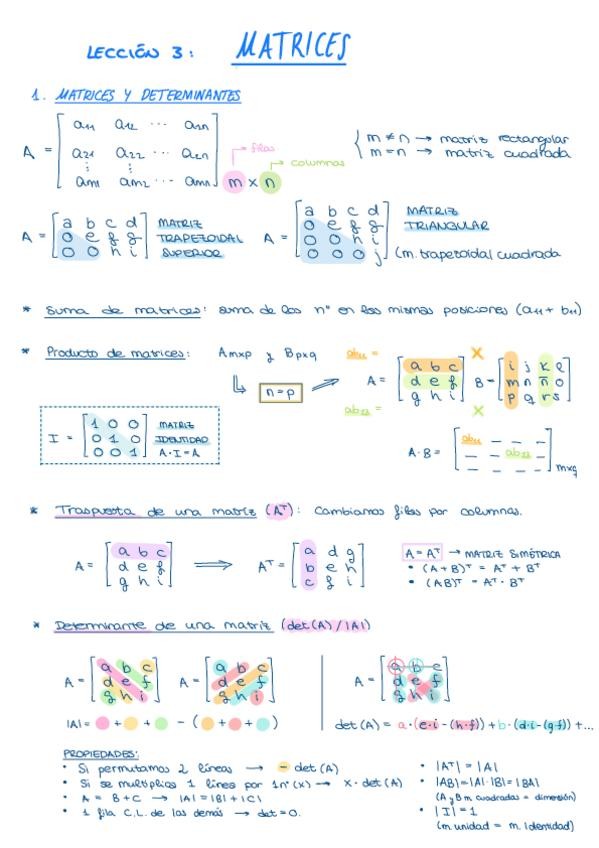 LECCIÓN 3: MATRICES
1. MATRICES Y DETERMINANTES
A = [ a11 a12 ... a1n
a21 a22 ... a2n
⋮ ⋮
am1 am2 ... amn ] m x n
filas
columnas
{ m ≠ n → matriz rectangular
m = n → matriz cuadrada
A = [ a b c d
0 e f g
0 0 h i ]
MATRIZ
TRAPEZOIDAL
SUPERIOR
A = [ a b c d
0 e f g
0 0 h i
0 0 0 j ]
MATRIZ
TRIANGULAR
(m. trapezoidal cuadrada
* Suma de matrices: suma de los nº en las mismas posiciones (a11 + b11)
* Producto de matrices: Amxp y Bpxq
n = p
ab11 =
A = [ a b c
d e f
g h i ]
x
B = [ i j k l
m n ñ o
p q r s ]
x
A·B = [ ab11 _ _ _
_ _ ab23 _
_ _ _ _ ] mxq
I = [ 1 0 0
0 1 0
0 0 1 ]
MATRIZ
IDENTIDAD
A·I = A
* Traspuesta de una matriz (Aᵀ): Cambiamos filas por columnas.
A = [ a b c
d e f
g h i ]
⟹
Aᵀ = [ a d g
b e h
c f i ]
A = Aᵀ → MATRIZ SIMÉTRICA
• (A+B)ᵀ = Aᵀ + Bᵀ
• (AB)ᵀ = Aᵀ · Bᵀ
* Determinante de una matriz (det(A)/|A|)
A = [ a b c
d e f
g h i ]
A = [ a b c
d e f
g h i ]
|A| = + + - ( + + )
A = [ a b c
d e f
g h i ]
det(A) = a·(e·i-(h·f)) + b·(d·i-(g·f)) + ...
PROPIEDADES:
• Si permutamos 2 líneas → - det(A)
• Si se multiplica 1 línea por 1nº(x) → x · det(A)
• A = B + C → |A| = |B| + |C|
• 1 fila C.L. de las demás → det = 0.
• |Aᵀ| = |A|
• |AB| = |A|·|B| = |BA|
(A y B m cuadradas = dimensión)
• |I| = 1
(m. unidad = m. Identidad)